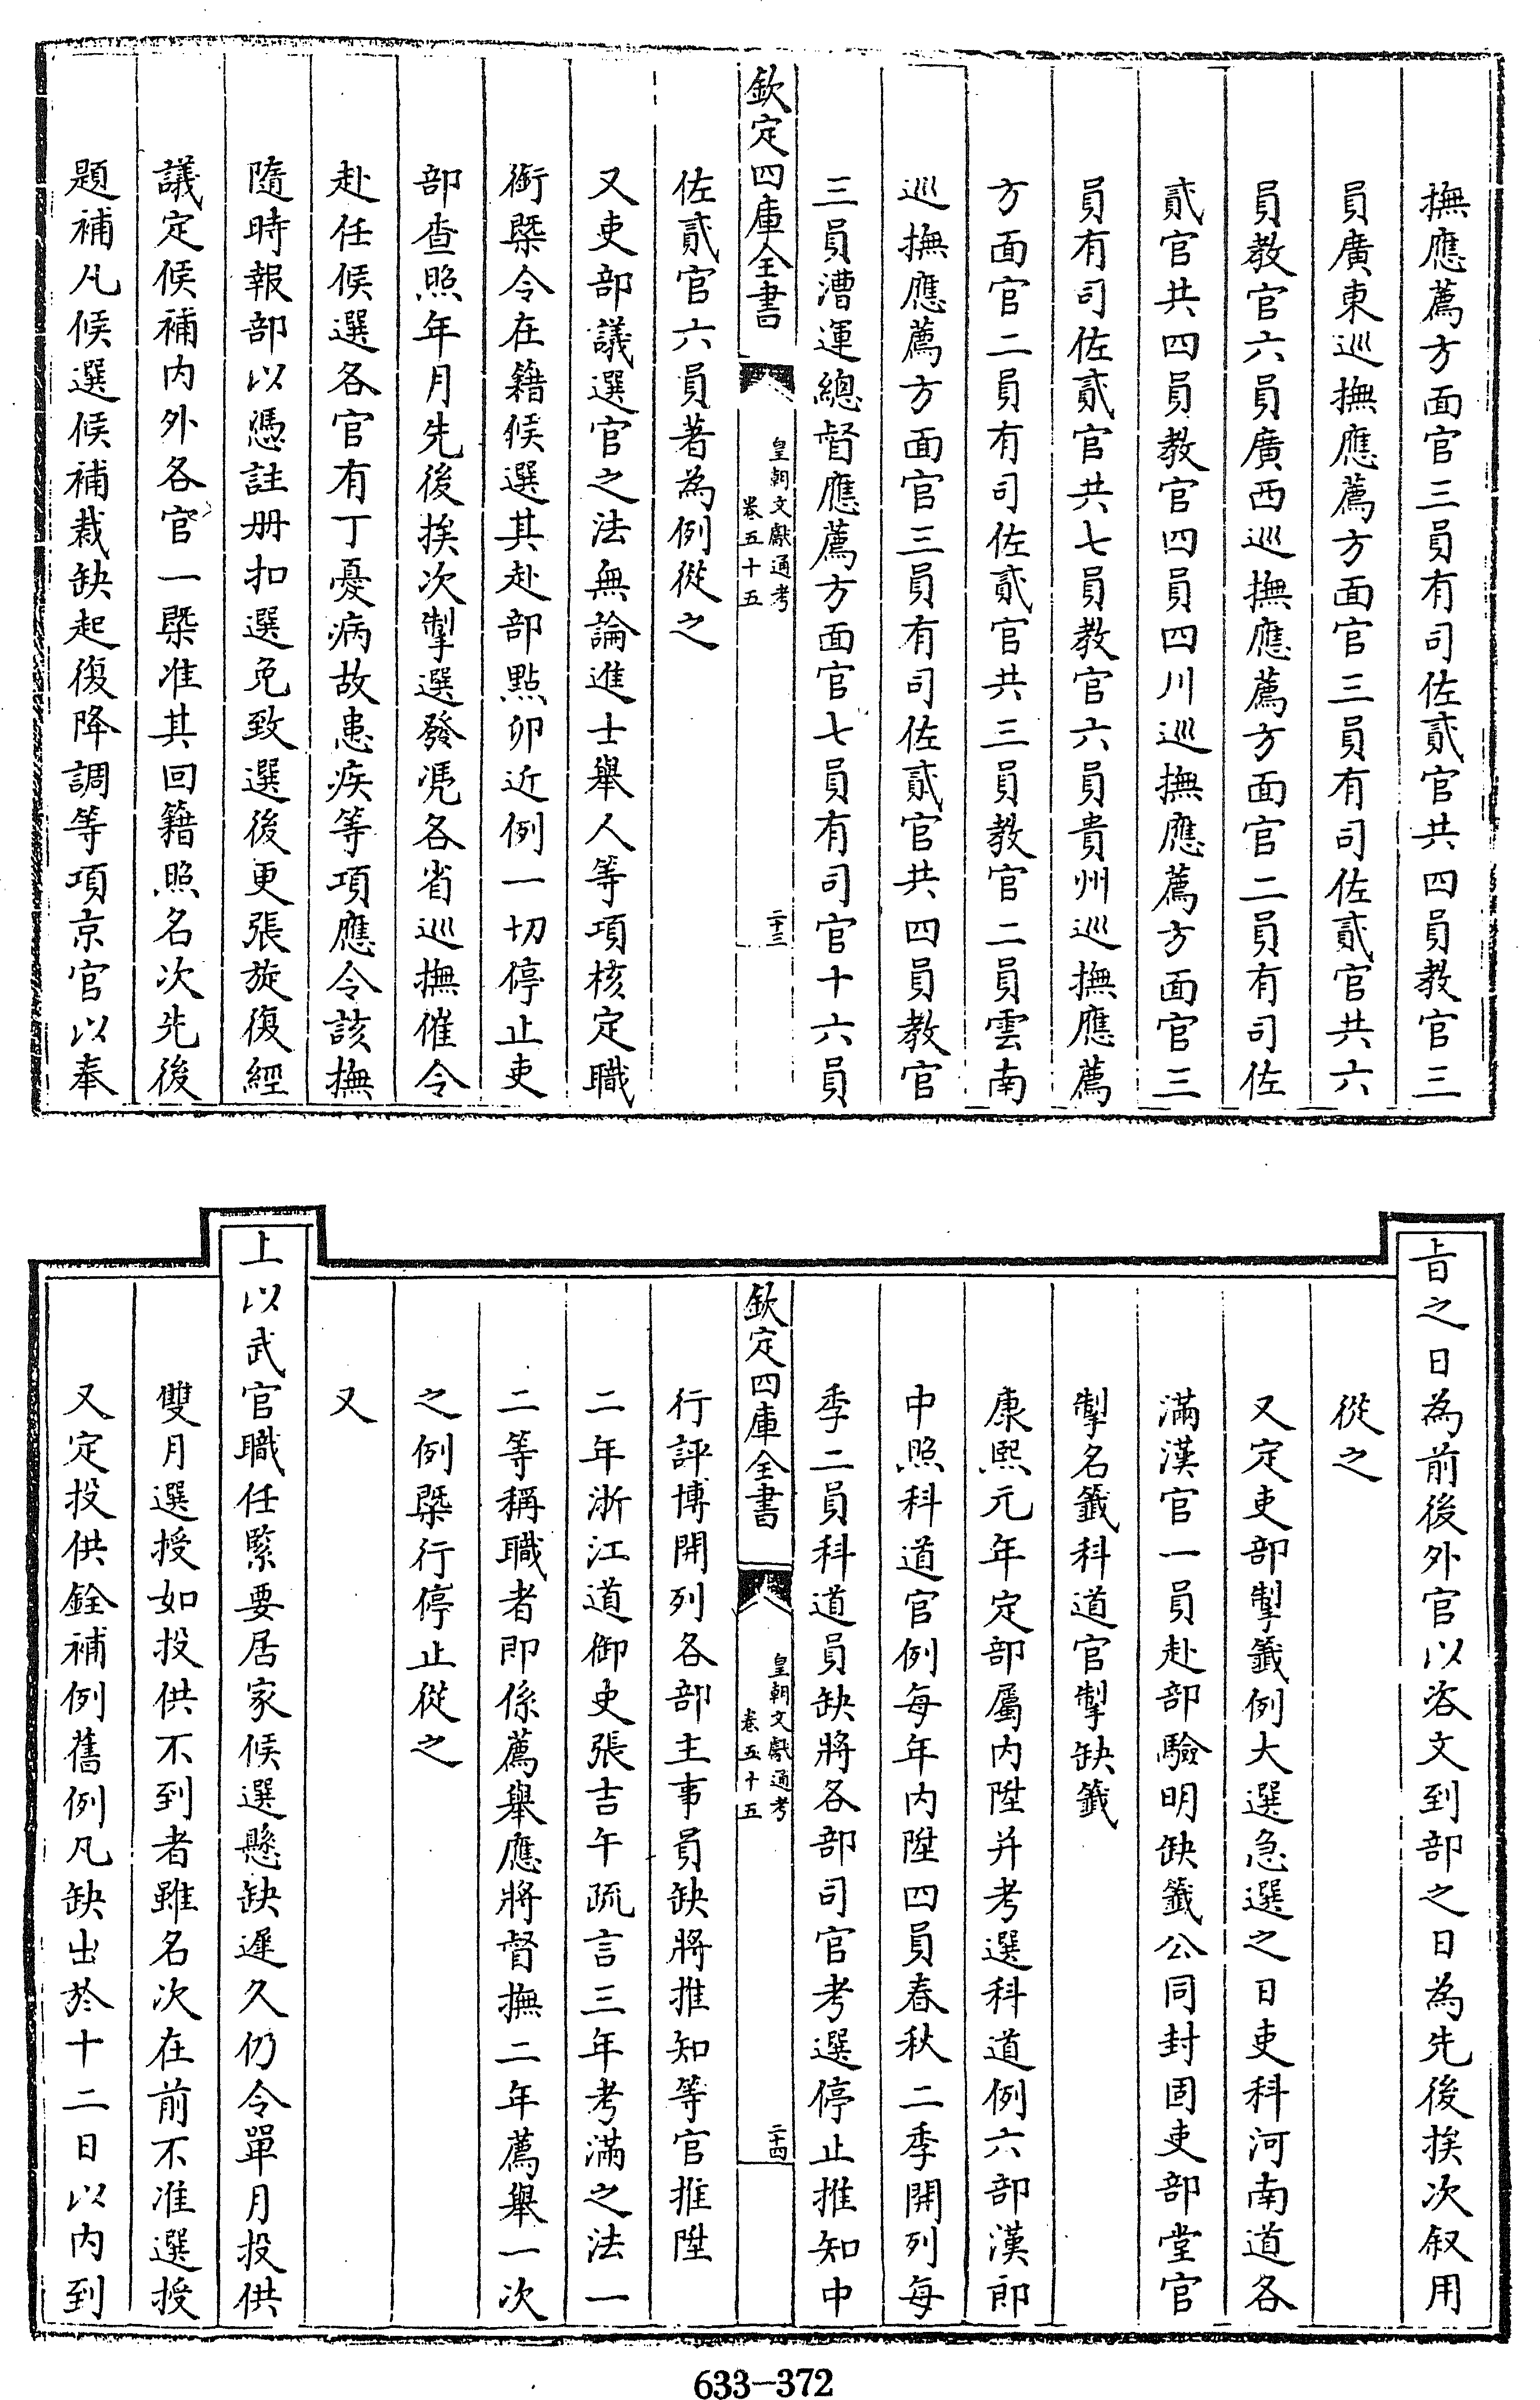 撫應薦方面官三員有司佐貳官共四員教官三
員廣東巡撫應薦方面官三員有司佐貳官共六
員教官六員廣西巡撫應薦方面官二員有司佐
貳官共四員教官四員四川巡撫應薦方面官三
員有司佐貳官共七員教官六員貴州巡撫應薦
方面官二員有司佐貳官共三員教官二員雲南
巡撫應薦方面官三員有司佐貳官共四員教官
三員漕運總督應薦方面官七員有司官十六員
欽定四庫全書
皇朝文獻通考
卷五十五
二十三
佐貳官六員著為例從之
又吏部議選官之法無論進士舉人等項核定職
銜槩令在籍候選其赴部點卯近例一切停止吏
部查照年月先後挨次掣選發凴各省巡撫催令
赴任候選各官有丁憂病故患疾等項應令該撫
隨時報部以憑註册扣選免致選後更張旋復經
議定候補內外各官一槩准其回籍照名次先後
題補凡候選候補裁缺起復降調等項京官以奉
旨之日為前後外官以咨文到部之日為先後挨次叙用
從之
又定吏部掣籤例大選急選之日吏科河南道各
滿漢官一員赴部驗明缺籤公同封固吏部堂官
掣名籤科道官掣缺籤
康熙元年定部屬內陞并考選科道例六部漢郎
中照科道官例每年內陞四員春秋二季開列每
季二員科道員缺將各部司官考選停止推知中
欽定四庫全書
皇朝文獻通考
卷五十五
二十四
行評博開列各部主事員缺將推知等官推陞
二年浙江道御史張吉午疏言三年考滿之法一
二等稱職者即係薦舉應將督撫二年薦舉一次
之例槩行停止從之
又
上以武官職任緊要居家候選懸缺遲久仍令單月投供
雙月選授如投供不到者雖名次在前不准選授
又定投供銓補例舊例凡缺出於十二日以內到
633-372